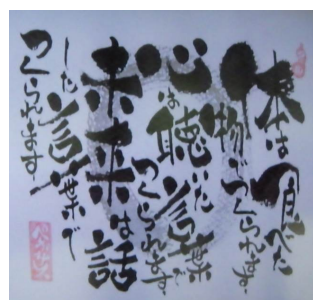 体は食べた
物でつくられます
心は聴いた言葉で
つくられます
未来は話
した言葉で
つくられます